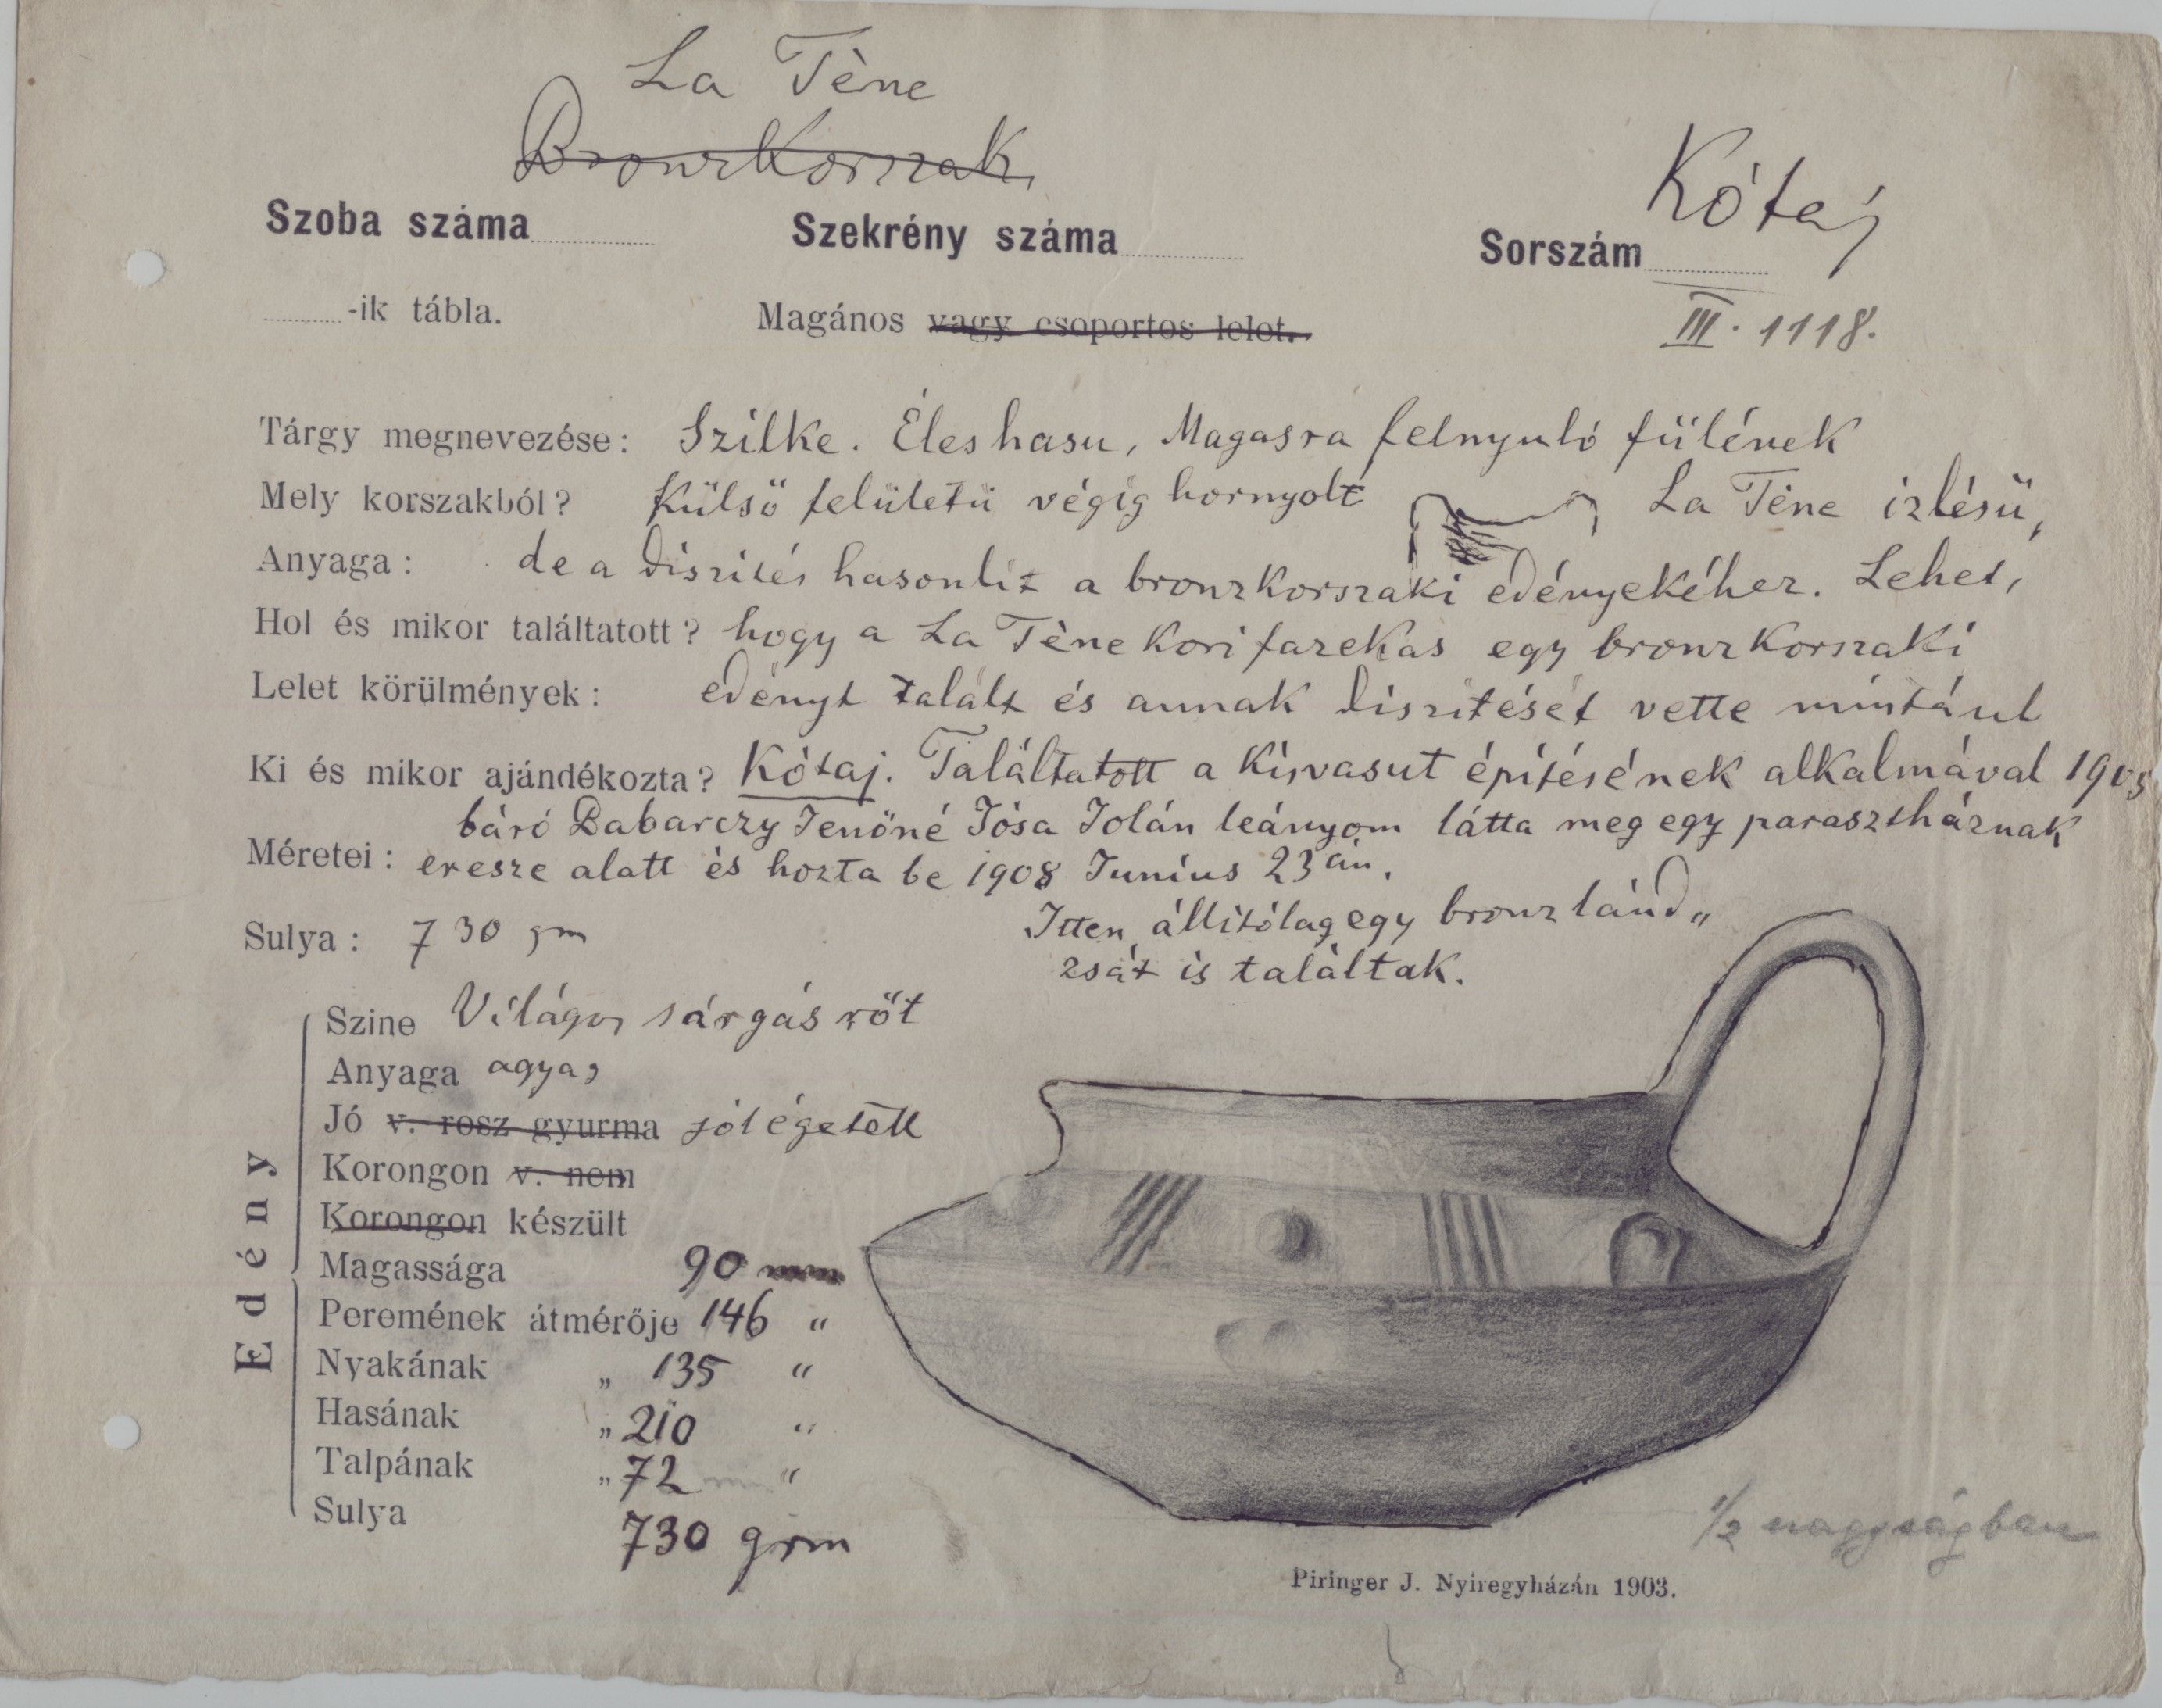 La Tène
Bronzkorszak
Kótaj
Szoba száma
Szekrény száma
Sorszám
-ik tábla.
Magános vagy csoportos lelet.
III. 1118.
Tárgy megnevezése: Szilke. Éles hasu, Magasra felnyuló fülének
Mely korszakból? Külső felületü végig hornyolt La Tène izlésü,
Anyaga: de a diszités hasonlit a bronzkorszaki edényekéhez. Lehet,
Hol és mikor találtatott? hogy a La Tène kori fazekas egy bronzkorszaki
Lelet körülmények: edényt talált és annak diszitését vette mintául
Ki és mikor ajándékozta? Kótaj. Találtatott a kisvasut épitésének alkalmával 1905
báró Babarczy Jenőné Jósa Jolán leányom látta meg egy parasztháznak
Méretei: eresze alatt és hozta be 1908 Junius 23 án.
Itten állitólag egy bronz lánd„
Sulya: 730 gm
zsát is találtak.
Edény
Szine Világos sárgás röt
Anyaga agyag
Jó v. rosz gyurma jól égetett
Korongon v. nem
Korongon készült
Magassága 90 mm
Peremének átmérője 146 "
Nyakának „ 135 "
Hasának „ 210 "
Talpának „ 72 "
Sulya 730 grm
1/2 nagyságban
Piringer J. Nyiregyházán 1903.